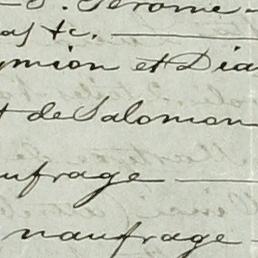 S. Jérome
as &c.
ymion et Dia
t de Salomon
ufrage
naufrage